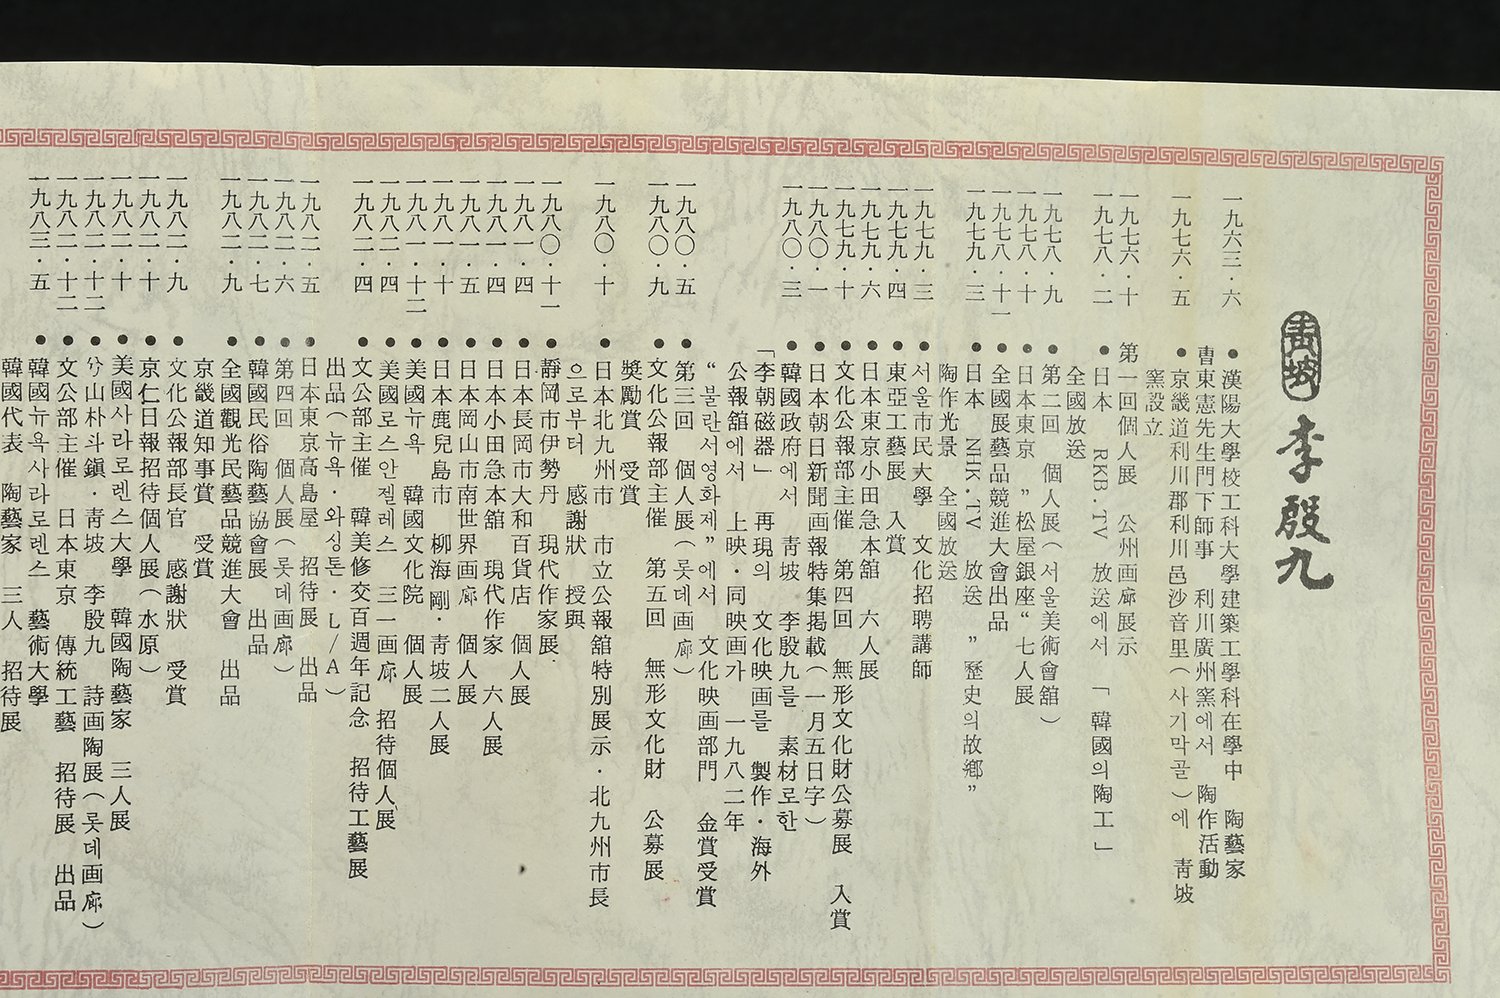 靑坡 李殷九
一九六三·六 ●漢陽大學校工科大學建築工學科在學中 陶藝家
曺東憲先生門下師事 利川廣州窯에서 陶作活動
一九七六·五 ●京畿道利川郡利川邑沙音里(사기막골)에 靑坡
窯設立
一九七六·十 第一回個人展 公州画廊展示
一九七八·二 ●日本 RKB.TV 放送에서 「韓國의陶工」
全國放送
一九七八·九 ●第二回 個人展(서울美術會舘)
一九七八·十 ●日本東京 "松屋銀座" 七人展
一九七八·十一 ●全國展藝品競進大會出品
一九七九·三 ●日本 NHK.TV 放送 "歷史의故鄕"
陶作光景 全國放送
一九七九·三 ●서울市民大學 文化招聘講師
一九七九·四 ●東亞工藝展 入賞
一九七九·六 ●日本東京小田急本舘 六人展
一九七九·十 ●文化公報部主催 第四回 無形文化財公募展 入賞
一九八〇·一 ●日本朝日新聞画報特集掲載(一月五日字)
一九八〇·三 ●韓國政府에서 靑坡 李殷九를 素材로한
「李朝磁器」 再現의 文化映画를 製作·海外
公報舘에서 上映·同映画가 一九八二年
"불란서영화제"에서 文化映画部門 金賞受賞
一九八〇·五 ●第三回 個人展(롯데画廊)
一九八〇·九 ●文化公報部主催 第五回 無形文化財 公募展
奬勵賞 受賞
一九八〇·十 ●日本北九州市 市立公報舘特別展示·北九州市長
으로부터 感謝狀 授與
一九八〇·十一 ●靜岡市伊勢丹 現代作家展
一九八一·四 ●日本長岡市大和百貨店 個人展
一九八一·四 ●日本小田急本舘 現代作家 六人展
一九八一·五 ●日本岡山市南世界画廊 個人展
一九八一·十 ●日本鹿兒島市 柳海剛·靑坡二人展
一九八一·十二 ●美國뉴욕 韓國文化院 個人展
一九八二·四 ●美國로스안젤레스 三一画廊 招待個人展
一九八二·四 ●文公部主催 韓美修交百週年記念 招待工藝展
出品(뉴욕·와싱톤·L/A)
一九八二·五 ●日本東京高島屋 招待展 出品
一九八二·六 ●第四回 個人展(롯데画廊)
一九八二·七 ●韓國民俗陶藝協會展 出品
一九八二·九 ●全國觀光民藝品競進大會 出品
京畿道知事賞 受賞
一九八二·九 ●文化公報部長官 感謝狀 受賞
一九八二·十 ●京仁日報招待個人展(水原)
一九八二·十 ●美國사라로렌스大學 韓國陶藝家 三人展
一九八二·十二 ●兮山朴斗鎭·靑坡 李殷九 詩画陶展(롯데画廊)
一九八二·十二 ●文公部主催 日本東京 傳統工藝 招待展 出品
一九八三·五 ●韓國뉴욕사라로렌스 藝術大學
韓國代表 陶藝家 三人 招待展